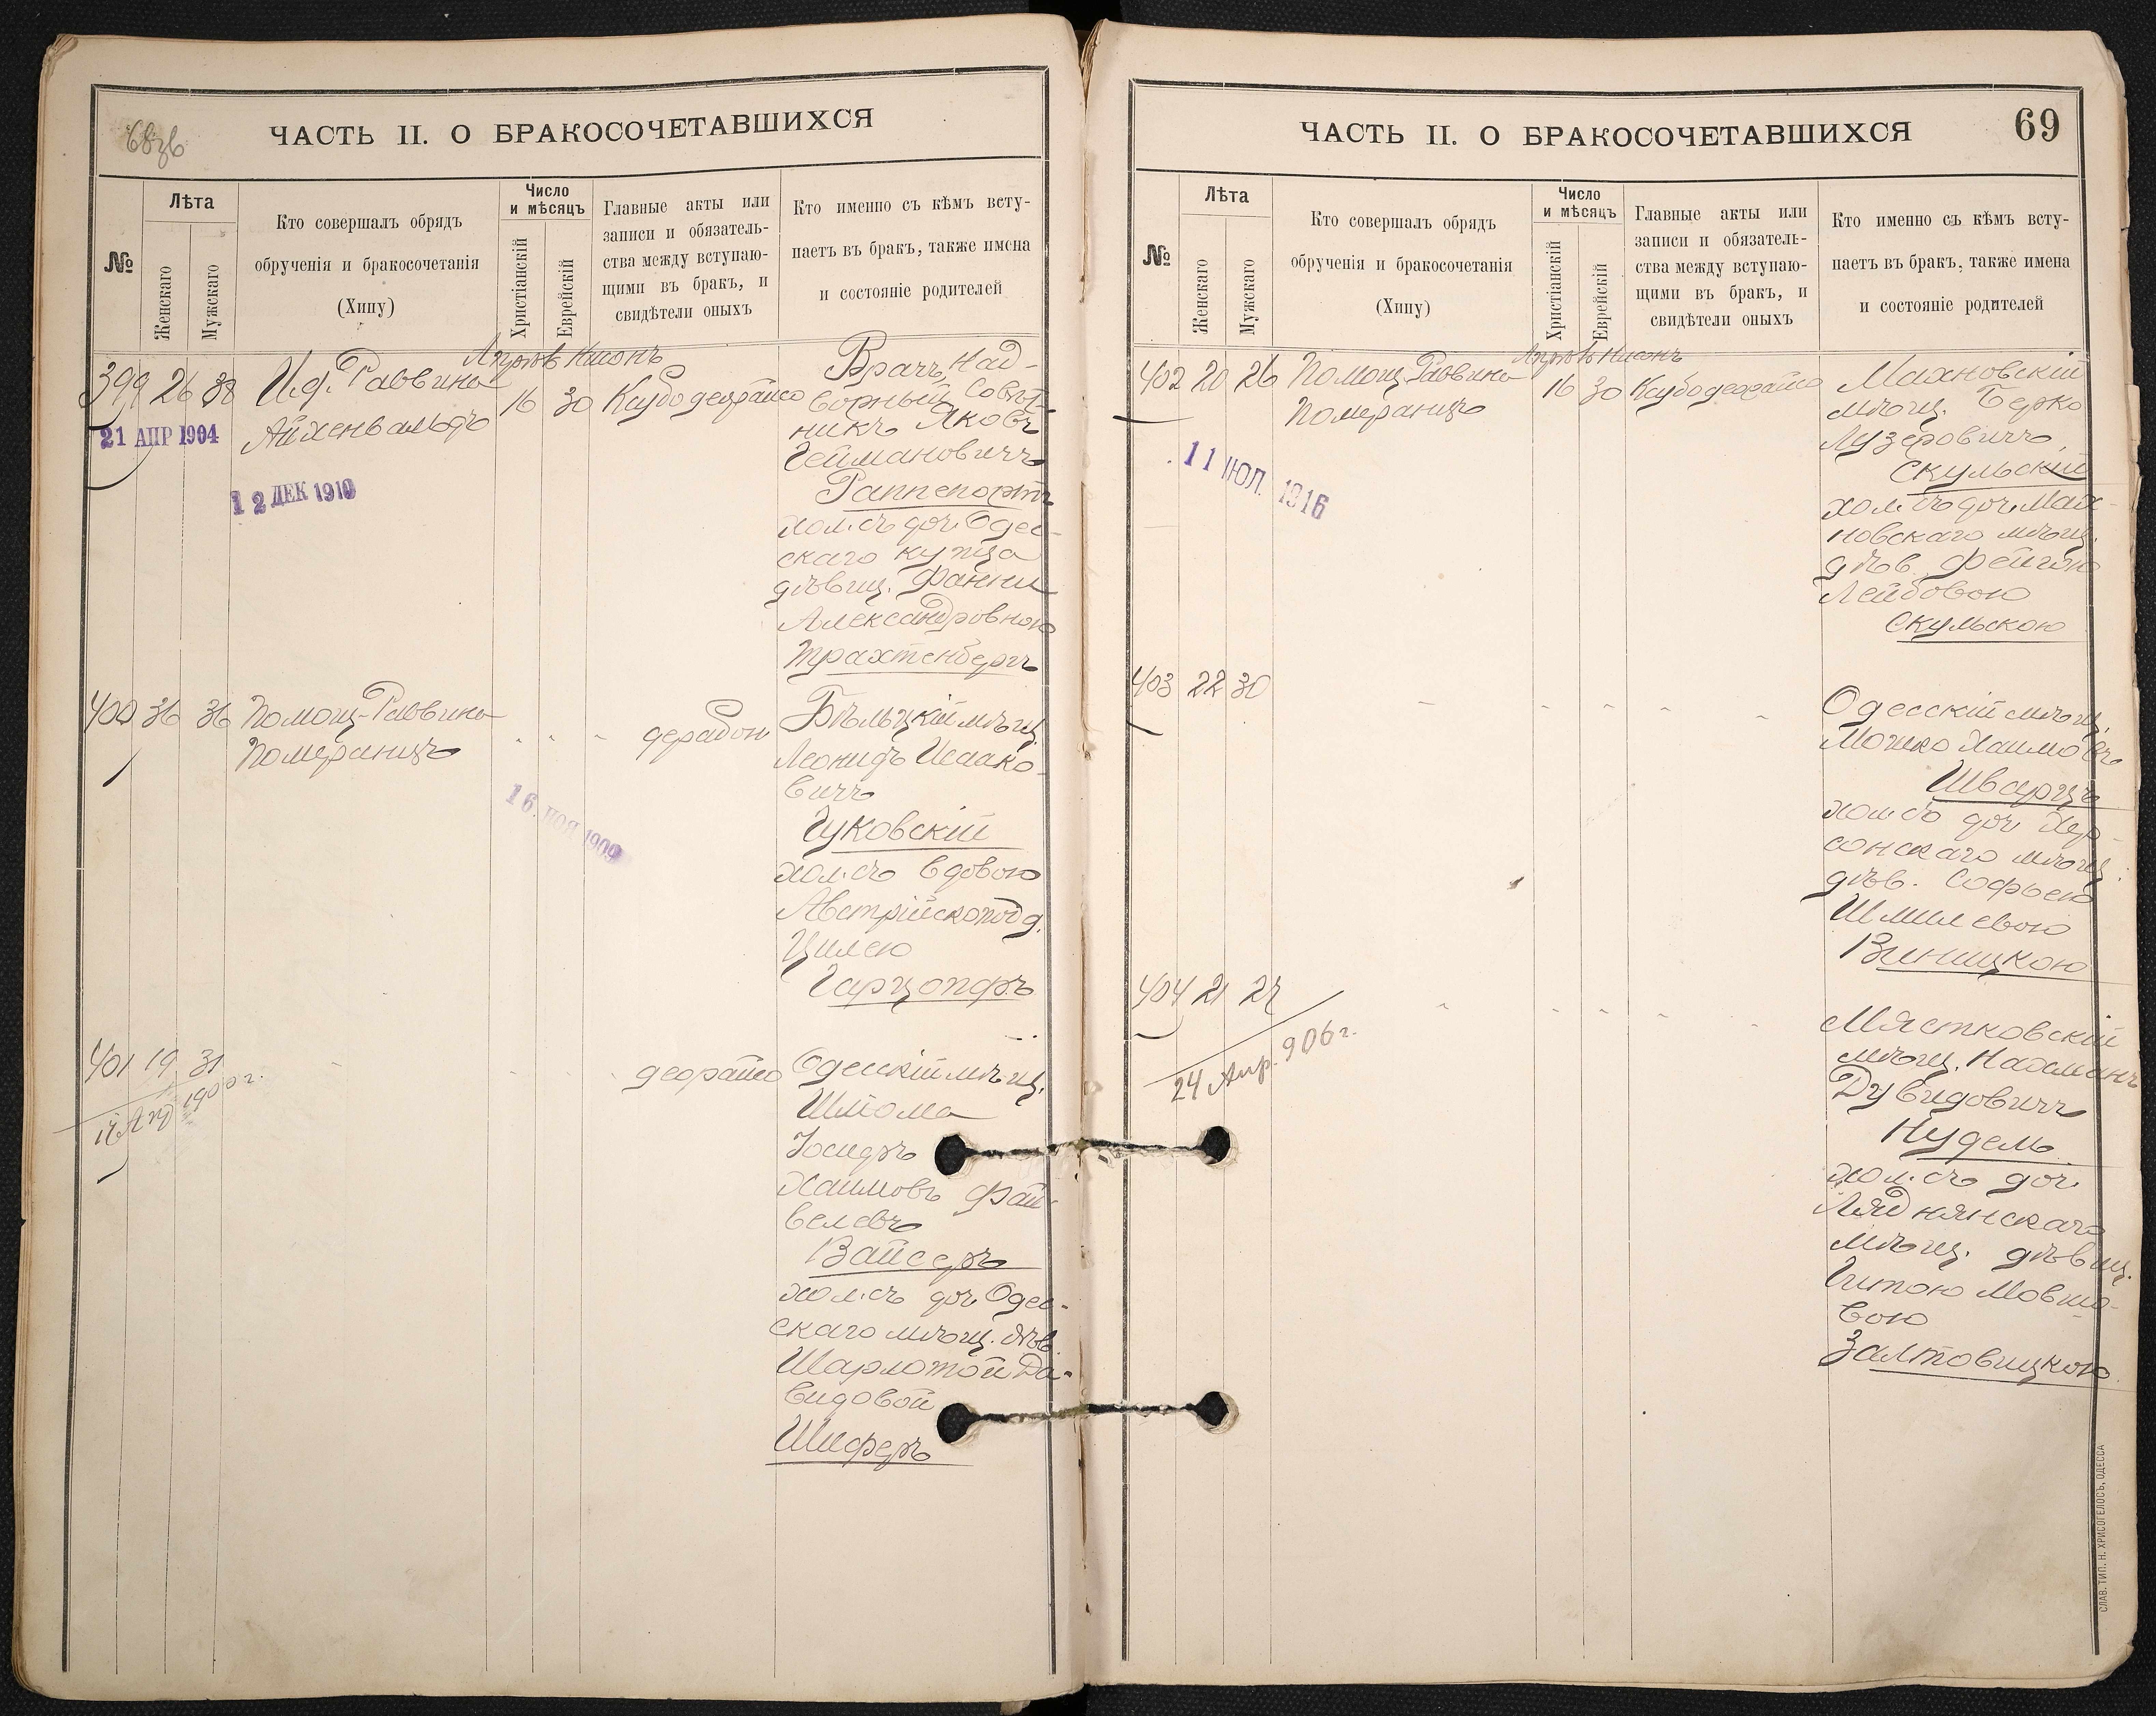 68об
ЧАСТЬ II. О БРАКОСОЧЕТАВШИХСЯ
№
Лѣта
Женскаго
Мужскаго
Кто совершалъ обрядъ
обрученія и бракосочетанія
(Хипу)
Число
и мѣсяцъ
Христіанскій
Еврейскій
Главные акты или
записи и обязатель-
ства между вступаю-
щими въ бракъ, и
свидѣтели оныхъ
Кто именно съ кѣмъ всту-
паетъ въ бракъ, также имена
и состояніе родителей
Апрѣль Нисонъ
399 26 38 И.д. Раввина 16 30 Каубо деорайсо Врачъ, Над-
Айхенвальдъ
21 АПР 1904
12 ДЕК 1910
ворный Совѣт-
никъ Яковъ
Геймановичъ
Раппепортъ
хол. съ доч. Одес-
скаго купца
дѣвиц. Фанни
Александровною
Трахтенбергъ
400 36 36 Помощ. Раввина " " " дерабон Бѣльцкій мѣщ.
Померанцъ
16. НОЯ 1909
Леонидъ Исаако-
вичъ
Гуковскій
хол. съ вдовою
Австрійско под д.
Цилею
Гарцопфъ
401 19 31 " " " деорайсо Одесскій мѣщ.
Апр 1900 г.
Шлома
Іосифъ
Хаимовъ Фай-
велевъ
Вайсеръ
хол. съ доч. Одес-
скаго мѣщ. дѣв.
Шарлотой Да-
видовой
Шиферъ
ЧАСТЬ II. О БРАКОСОЧЕТАВШИХСЯ
69
№
Лѣта
Женскаго
Мужскаго
Кто совершалъ обрядъ
обрученія и бракосочетанія
(Хипу)
Число
и мѣсяцъ
Христіанскій
Еврейскій
Главные акты или
записи и обязатель-
ства между вступаю-
щими въ бракъ, и
свидѣтели оныхъ
Кто именно съ кѣмъ всту-
паетъ въ бракъ, также имена
и состояніе родителей
Апрѣль Нисонъ
402 20 26 Помощ. Раввина 16 30 Каубо деорайсо Махновскій
Померанцъ
11 ІЮЛ. 1916
мѣщ. Берко
Лузеровичъ
Скульскій
хол. съ доч. Мах-
новскаго мѣщ.
дѣв. Фейгою
Лейбовою
Скульскою
403 22 30 " " " " " Одесскій мѣщ.
Мошко Хаимовъ
Шварцъ
хол. съ доч. Хер-
сонскаго мѣщ.
дѣв. Софьею
Шмилевою
Виницкою
404 21 27 " " " " " Мястковскій
24 Апр. 906 г.
мѣщ. Нахманъ
Дувидовичъ
Нудель
хол. съ доч.
Ляднянскаго
мѣщ. дѣвиц.
Гитою Мовшо-
вою
Залтовицкою
СЛАВ. ТИП. Н. ХРИСОГЕЛОСЪ, ОДЕССА